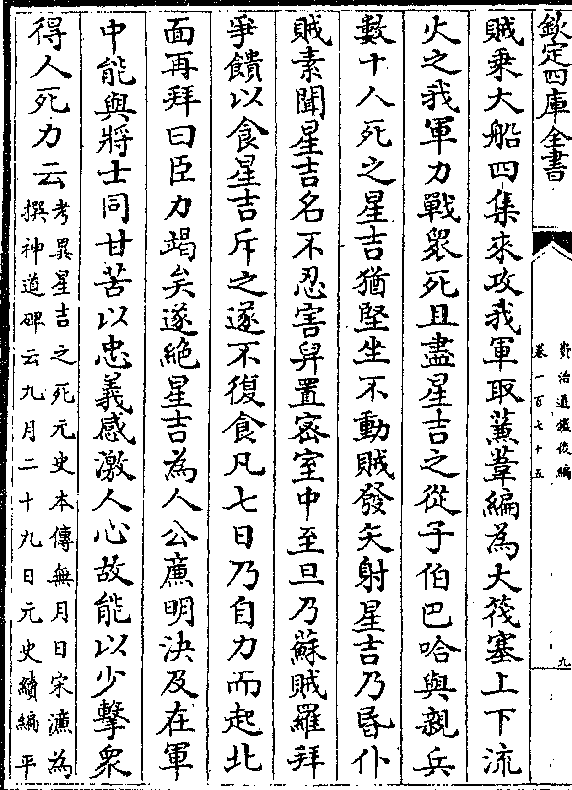 欽定四庫全書
資治通鑑後編
卷一百七十五
九
賊乘大船四集來攻我軍取蒹葦編為大筏塞上下流
火之我軍力戰衆死且盡星吉之從子伯巴哈與親兵
數十人死之星吉猶堅坐不動賊發矢射星吉乃昏仆
賊素聞星吉名不忍害舁置密室中至旦乃蘇賊羅拜
爭饋以食星吉斥之遂不復食凡七日乃自力而起北
面再拜曰臣力竭矣遂絶星吉為人公廉明決及在軍
中能與將士同甘苦以忠義感激人心故能以少擊衆
得人死力云
考異星吉之死元史本傳無月日宋濂為
撰神道碑云九月二十九日元史續編平